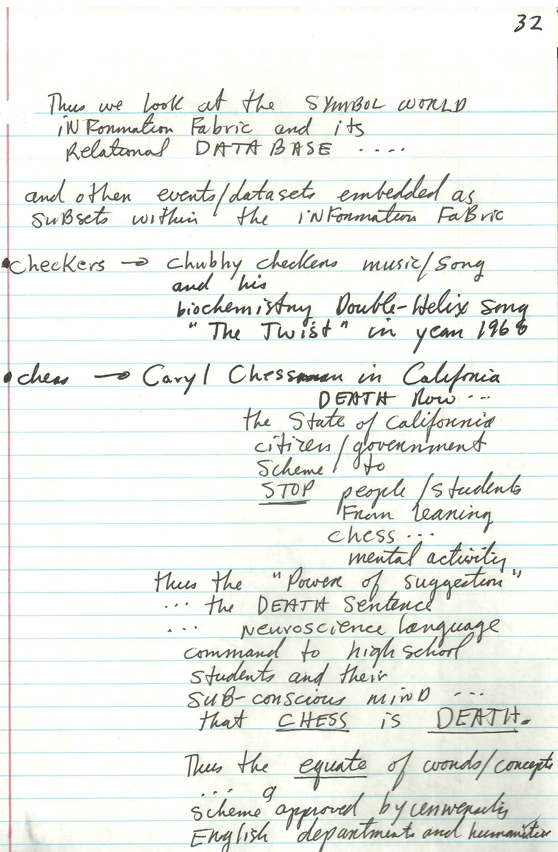 32
Thus we look at the SYMBOL WORLD
iNFormation Fabric and its
Relational DATABASE ....
and other events/datasets embedded as
SUBsets within the iNFormation FaBric
•checkers → chubby checkers music/song
and his
biochemistry Double-Helix song
"The Twist" in year 1960
•chess → Caryl Chessman in Califonia
DEATH Row ...
the State of California
citizen/government
Scheme to
STOP people/students
From leaning
chess ...
mental activity
thus the "Power of suggestion"
... the DEATH Sentence
... Neuroscience language
command to high school
students and their
SUB-conscious miND ...
that CHESS is DEATH.
Thus the equate of words/concepts
.... a
scheme approved by
English departments and humanities